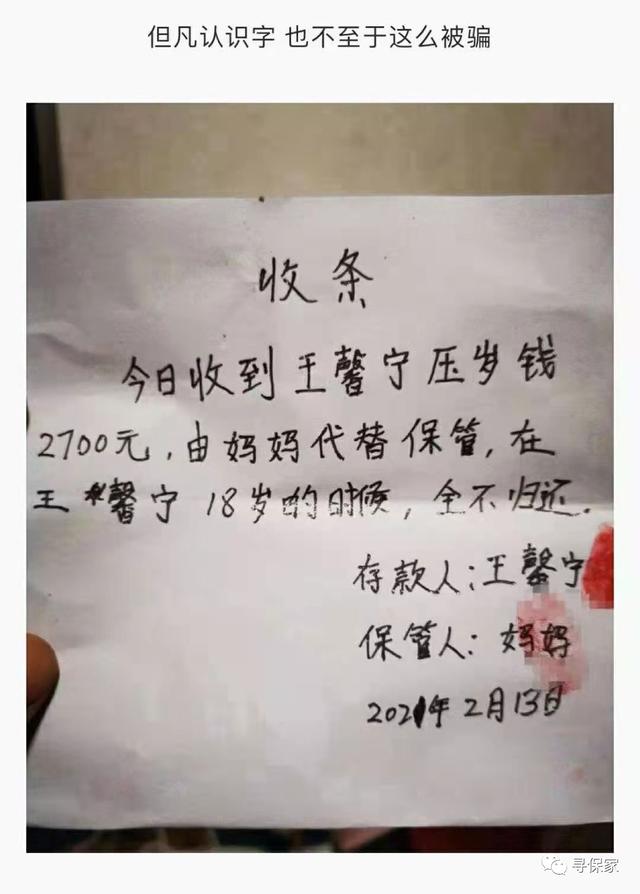 但凡认识字 也不至于这么被骗
收条
今日收到王馨宁压岁钱
2700元，由妈妈代替保管，在
王馨宁18岁的时候，全不归还.
存款人：王馨宁
保管人：妈妈
2021年2月13日
寻保家